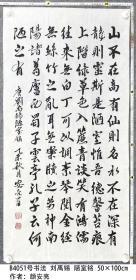 山不在高有仙則名水不在深有
龍則靈斯是陋室惟吾德馨苔痕
上階綠草色入簾青談笑有鴻儒
往來無白丁可以調素琴閱金經
無絲竹之亂耳無案牘之勞形南
陽諸葛廬西蜀子雲亭孔子云何
陋之有 唐劉禹錫陋室銘
B4051号书法 刘禹锡 陋室铭 50×100cm
作者：颜安亮